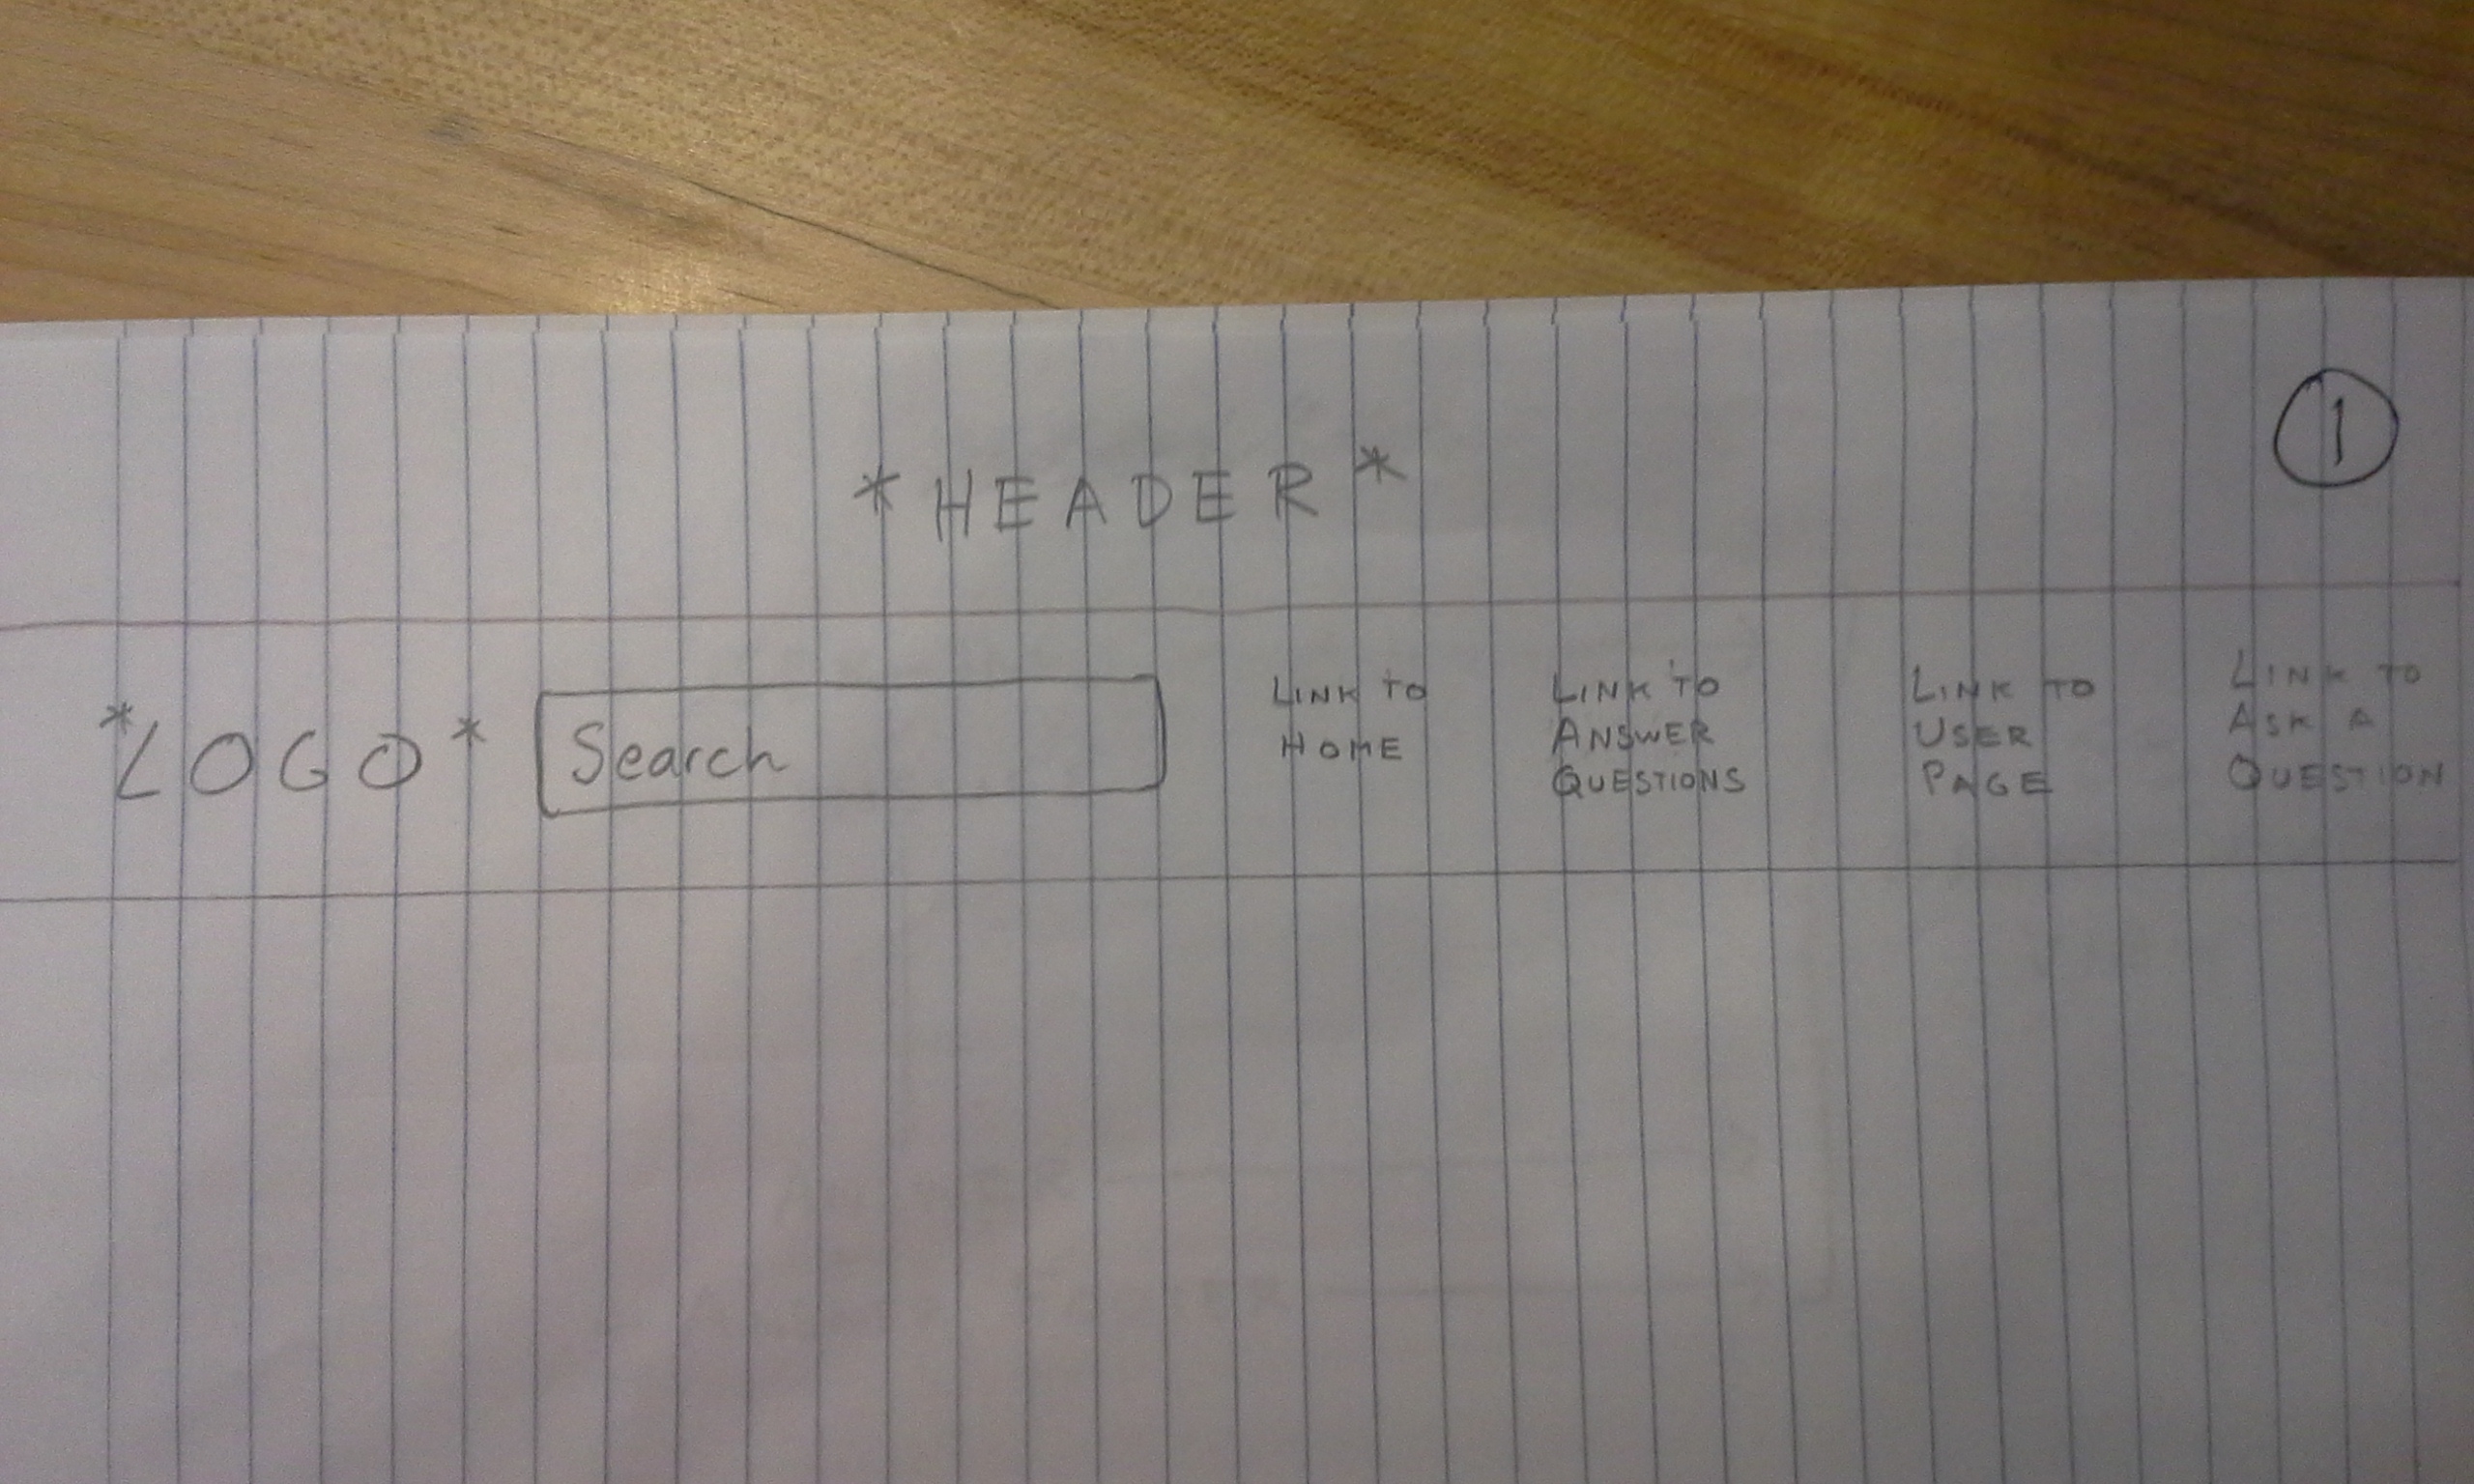 1
*HEADER*
*LOGO*
Search
LINK TO
HOME
LINK TO
ANSWER
QUESTIONS
LINK TO
USER
PAGE
LINK TO
ASK A
QUESTION